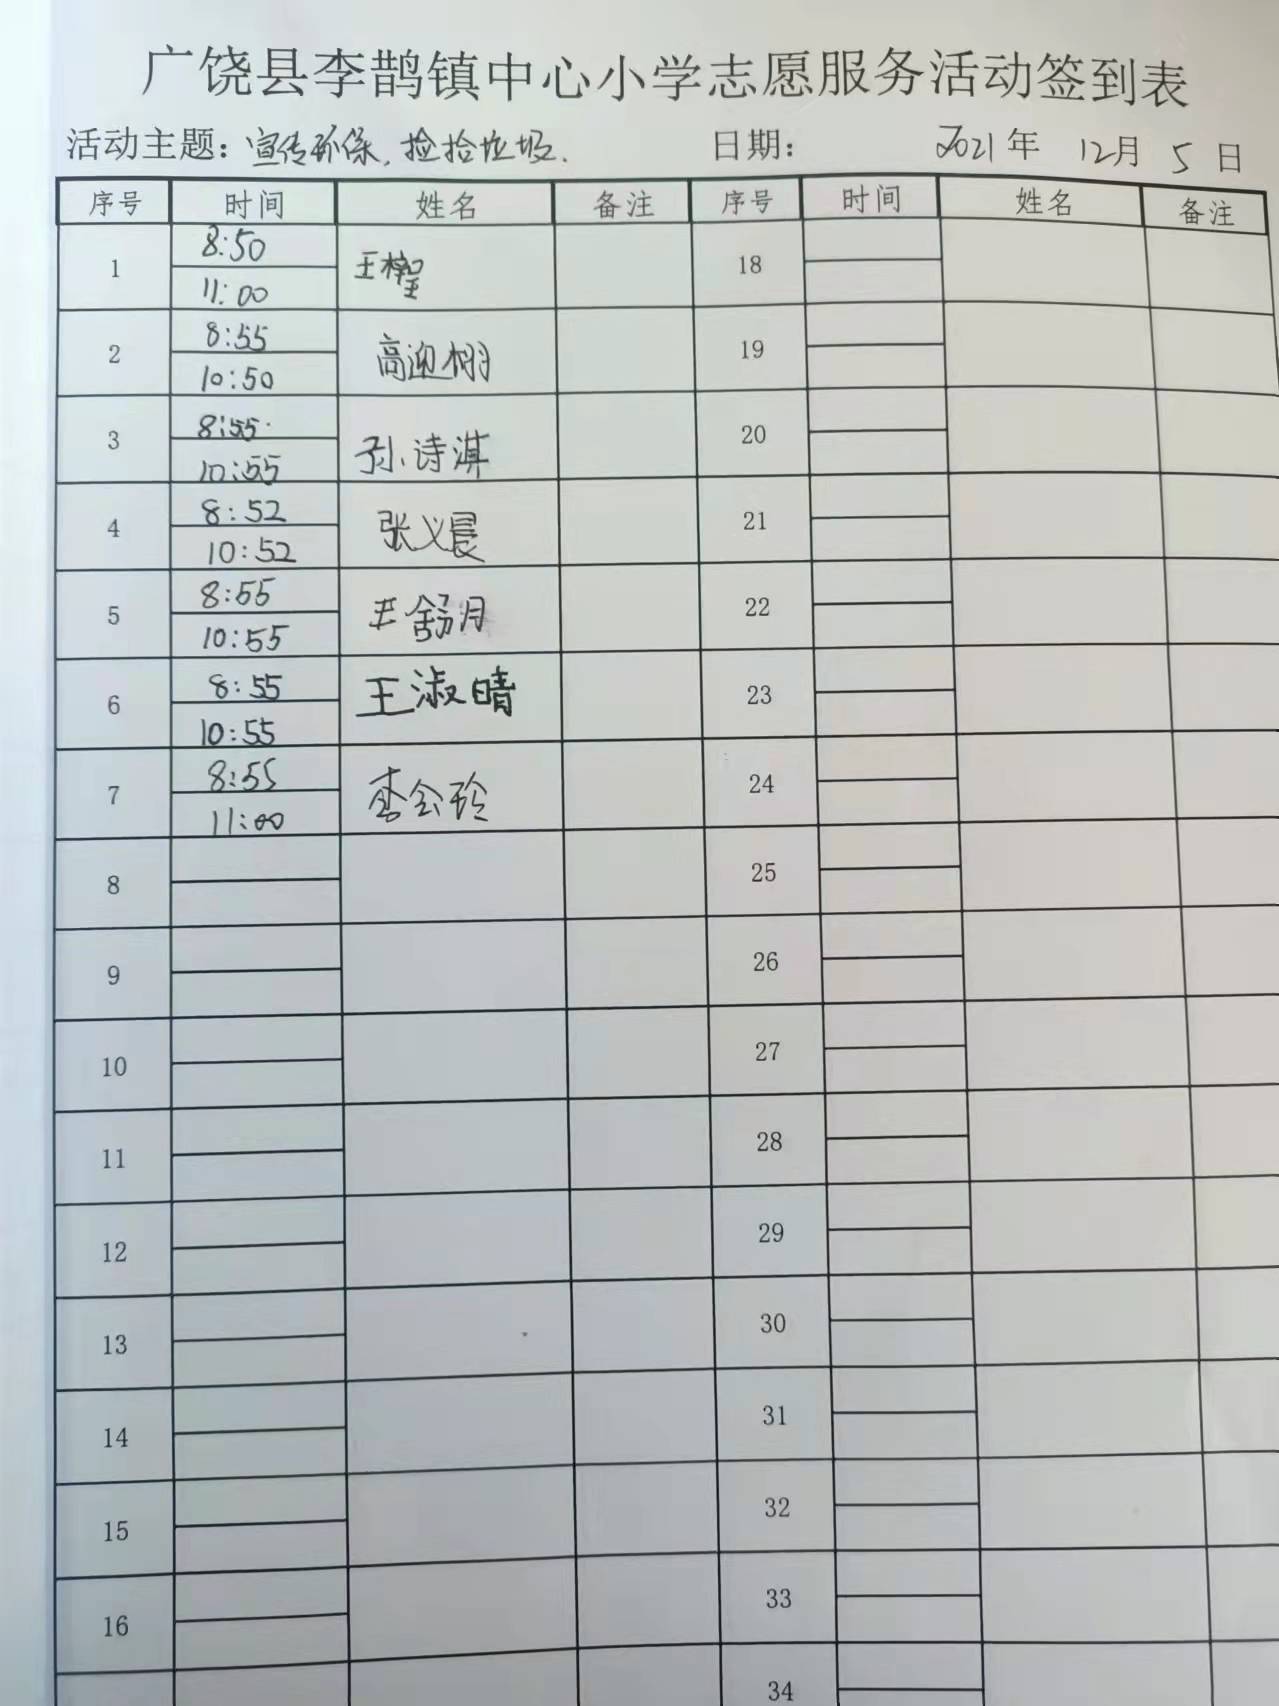 广饶县李鹊镇中心小学志愿服务活动签到表
活动主题：宣传环保，捡拾垃圾. 日期： 2021年 12月 5日
序号 时间 姓名 备注 序号 时间 姓名 备注
1 8:50 11:00 王 18
2 8:55 10:50 高迎栩 19
3 8:55 10:55 孙诗淇 20
4 8:52 10:52 张义晨 21
5 8:55 10:55 王舒月 22
6 8:55 10:55 王淑晴 23
7 8:55 11:00 李会玲 24
8 25
9 26
10 27
11 28
12 29
13 30
14 31
15 32
16 33
34